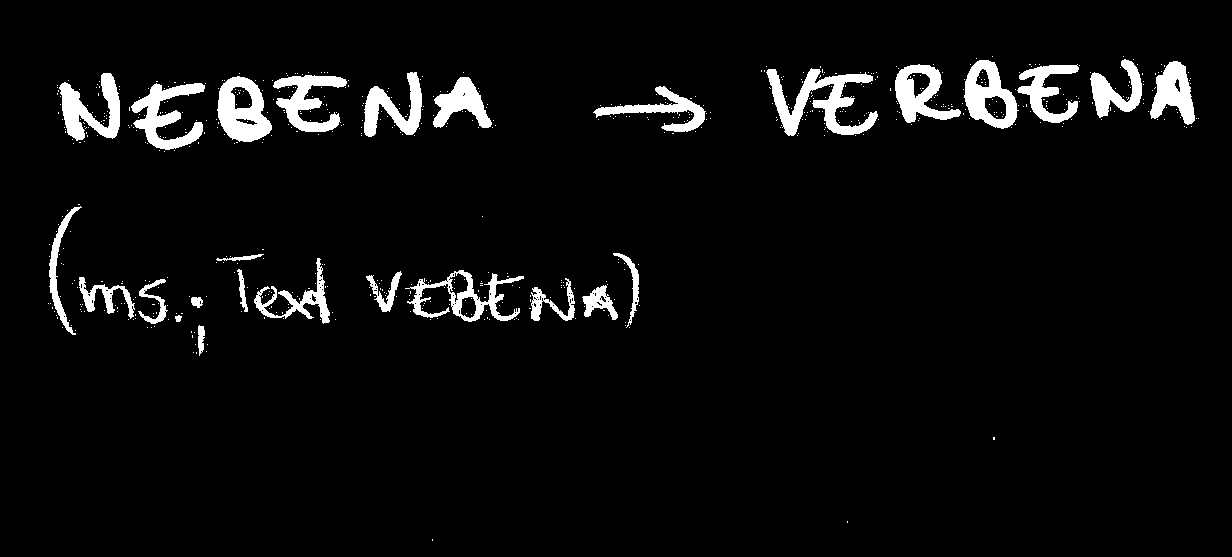 NEBENA → VERBENA
(ms.; Text VEBENA)